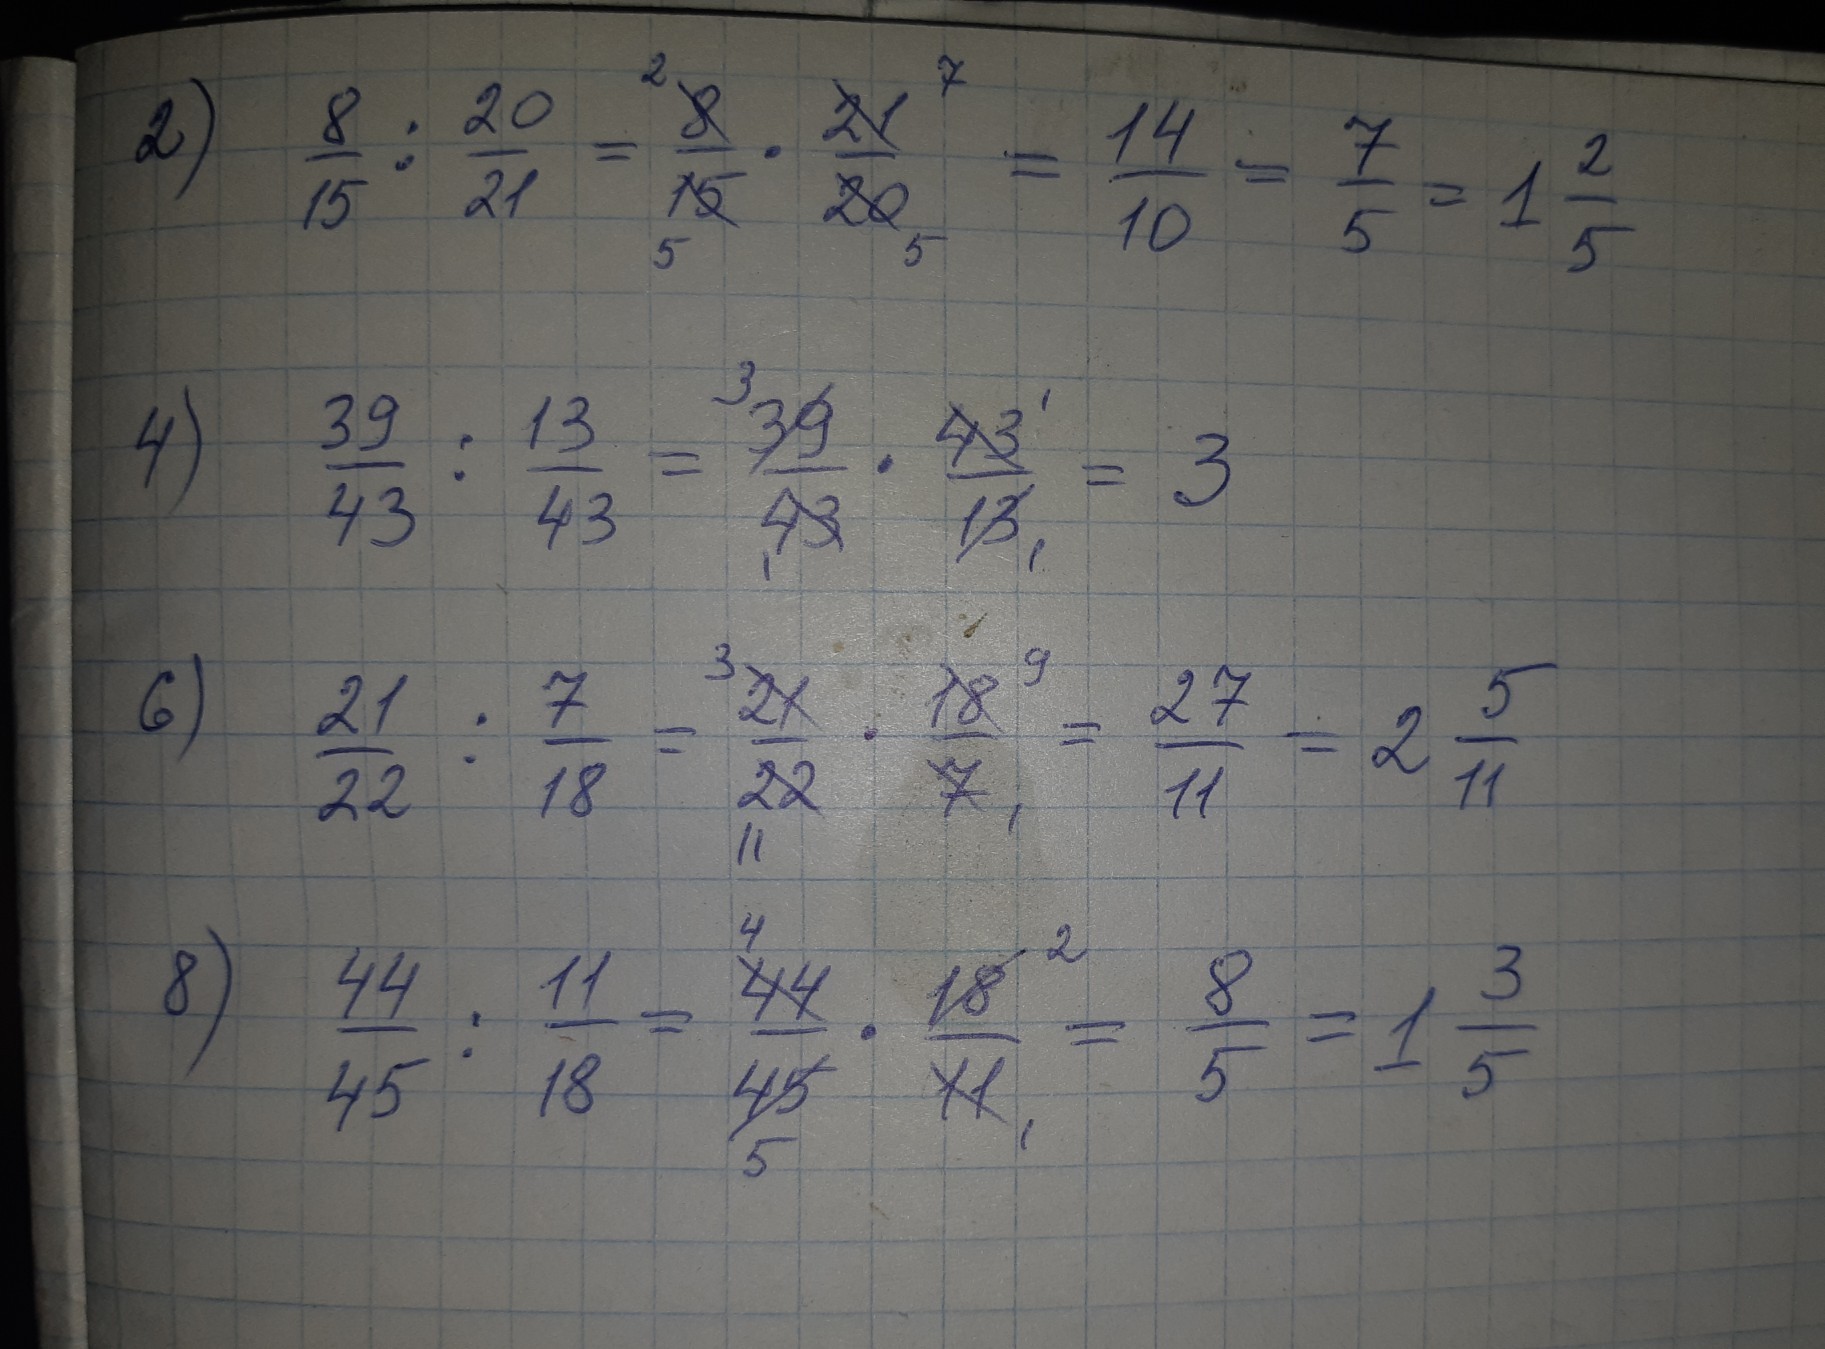 2) 8/15 : 20/21 = ²8/15₅ · 21⁷/20₅ = 14/10 = 7/5 = 1 2/5
4) 39/43 : 13/43 = ³39/43₁ · 43¹/13₁ = 3
6) 21/22 : 7/18 = ³21/22₁₁ · 18⁹/7₁ = 27/11 = 2 5/11
8) 44/45 : 11/18 = ⁴44/45₅ · 18²/11₁ = 8/5 = 1 3/5